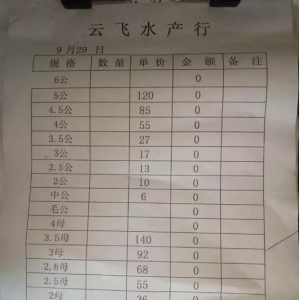 云飞水产行
9月29日
规格 数量 单价 金额 备注
6公 0
5公 120 0
4.5公 85 0
4公 55 0
3.5公 27 0
3公 17 0
2.5公 13 0
2公 10 0
中公 6 0
毛公 0
4母 0
3.5母 140 0
3母 92 0
2.8母 68 0
2.5母 55 0
2母 36 0